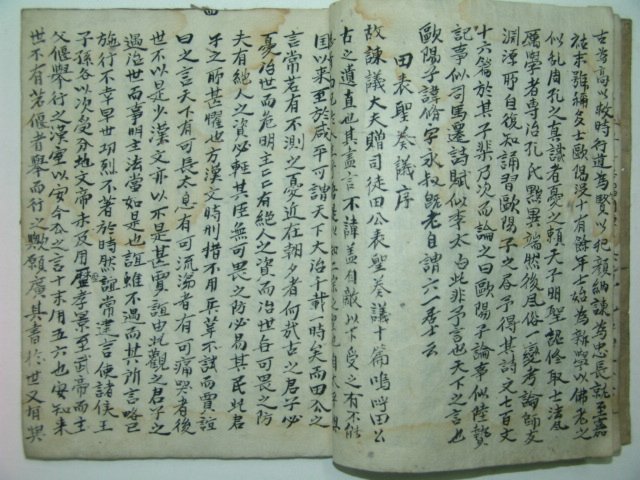 古為高以救時行道為賢以犯顏納諫為忠長就至嘉
祐末號稱多士歐陽沒十有餘年士始為新學以佛老之
似乱周孔之真識者憂之賴天子明聖詔修取士法風
厲學者專治孔氏黜異端然後風俗一變考論師友
淵源所自後知誦習歐陽子之書予得其詩文七百六
十六篇於其子棐乃次而論之曰歐陽子論事似陸贄
記事似司馬遷詩賦似李太白此非予言也天下之言也
歐陽子諱脩字永叔旣老自謂六一居士云
田表聖奏議序
故諫議大夫贈司徒田公表聖奏議十篇嗚呼田公
古之遺直也其盡言不諱盖自敵以下受之有不能
国以来至於咸平可謂天下大治千載一時矣而田公之
言常若有不測之憂近在朝夕者何哉古之君子必
憂治世而危明主明主有絕人之資而治世無可畏之防
夫有絕人之資必輕其臣無可畏之防必易其民此君
子之所甚懼也方漢文時刑措不用兵革不試而賈誼
曰之言天下有可長太息有可流涕者有可痛哭者後
世不以是少漢文亦以不是甚賈誼由此觀之君子之
遇治世而事明主法當如是也誼雖不遇而其所言略已
施行不幸早世功烈不著於時然誼常建言使諸侯王
子孫各以次受分地文帝未及用歷孝景至武帝而主
父偃舉行之漢室以安今公之言十未用五六也安知来
世不有若偃者舉而行之歟願廣其書於世又有與